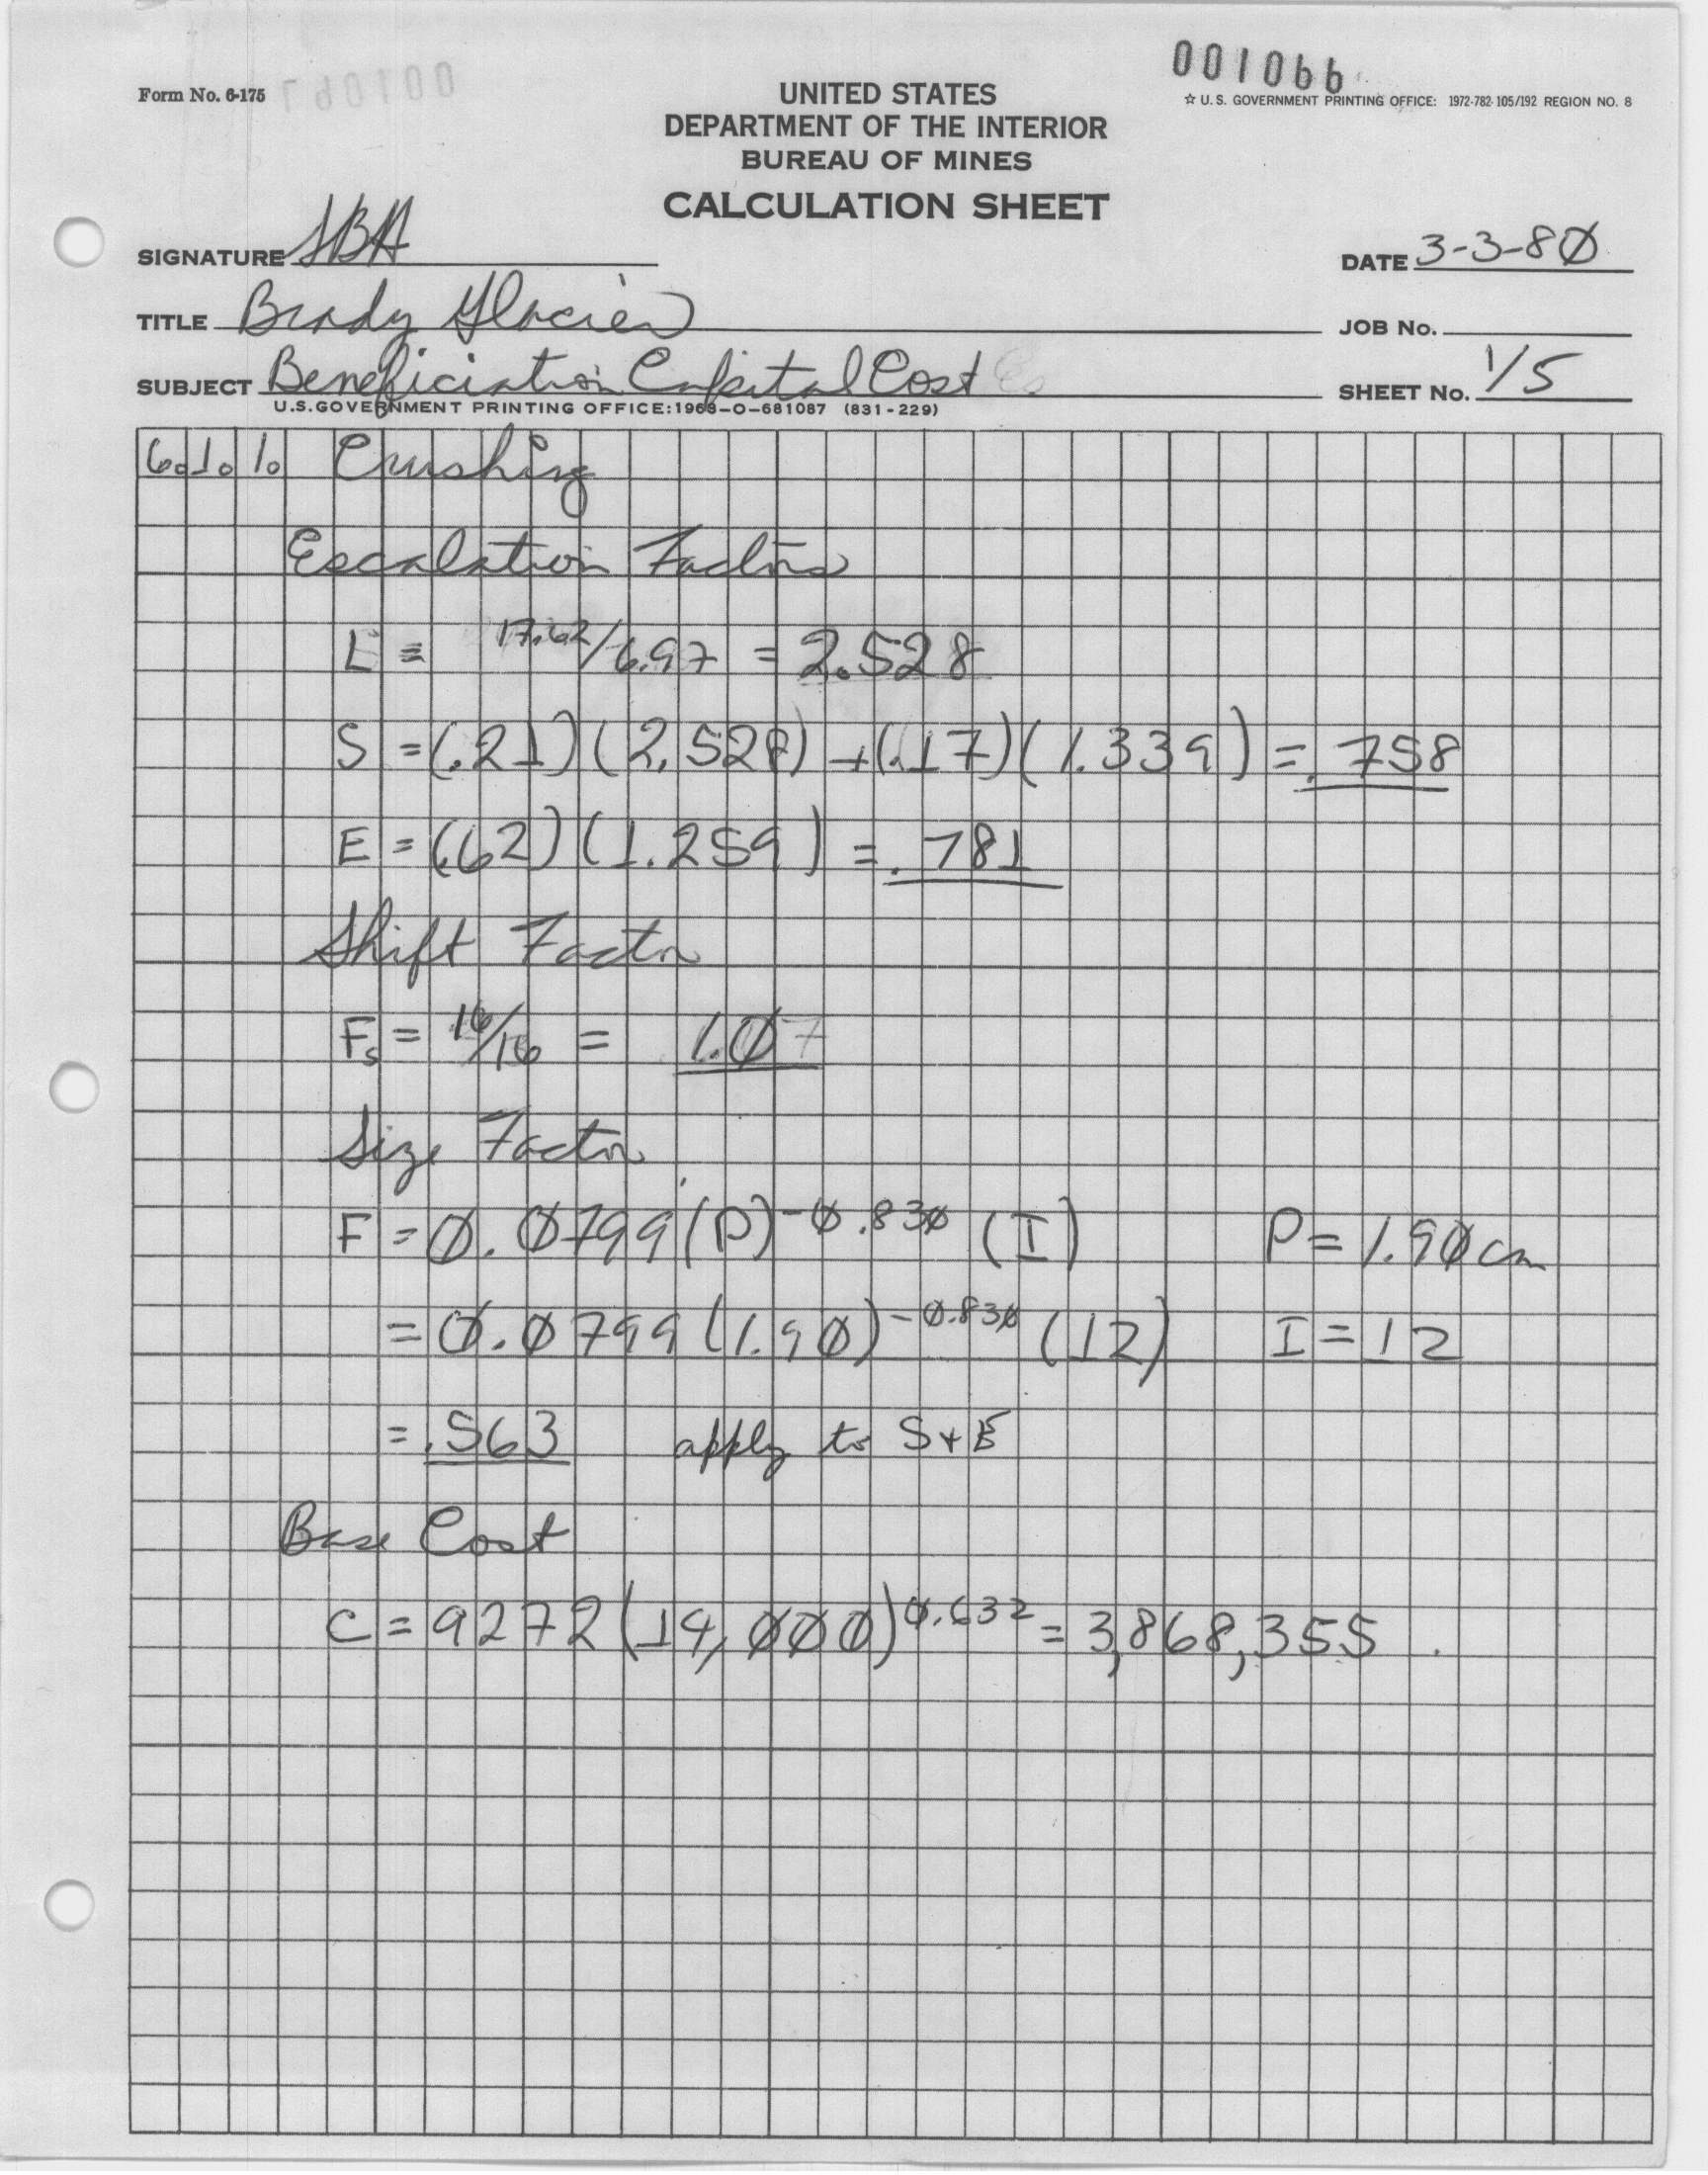 001066
Form No. 6-175
001067
UNITED STATES
☆ U. S. GOVERNMENT PRINTING OFFICE: 1972-782-105/192 REGION NO. 8
DEPARTMENT OF THE INTERIOR
BUREAU OF MINES
CALCULATION SHEET
SIGNATURE SBA
DATE 3-3-80
TITLE Brady Glacier
JOB No.
SUBJECT Beneficiation Capital Cost
SHEET No. 1/5
U.S.GOVERNMENT PRINTING OFFICE:1968-O-681087 (831-229)
6.1.1. Crushing
Escalation Factors
L = 17.62/6.97 = 2.528
S = (.21)(2.528) + (.17)(1.339) = .758
E = (.62)(1.259) = .781
Shift Factor
Fs = 16/16 = 1.0
Size Factor
F = 0.0799(P)^-0.830 (I) P = 1.90 cm
= 0.0799(1.90)^-0.830 (12) I = 12
= .563 apply to S+E
Base Cost
C = 9272(14,000)^0.632 = 3,868,355